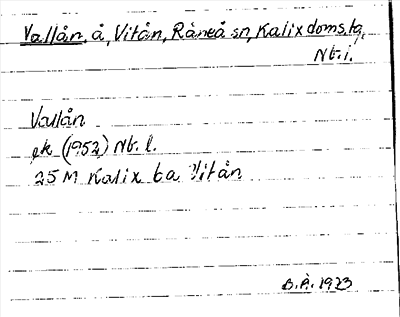 Vallån, å, Vitån, Råneå sn, Kalix doms.tg,
Nb.l.
Vallån
ek (1952) Nb.l.
25 M Kalix ba Vitån
B.Å. 1923